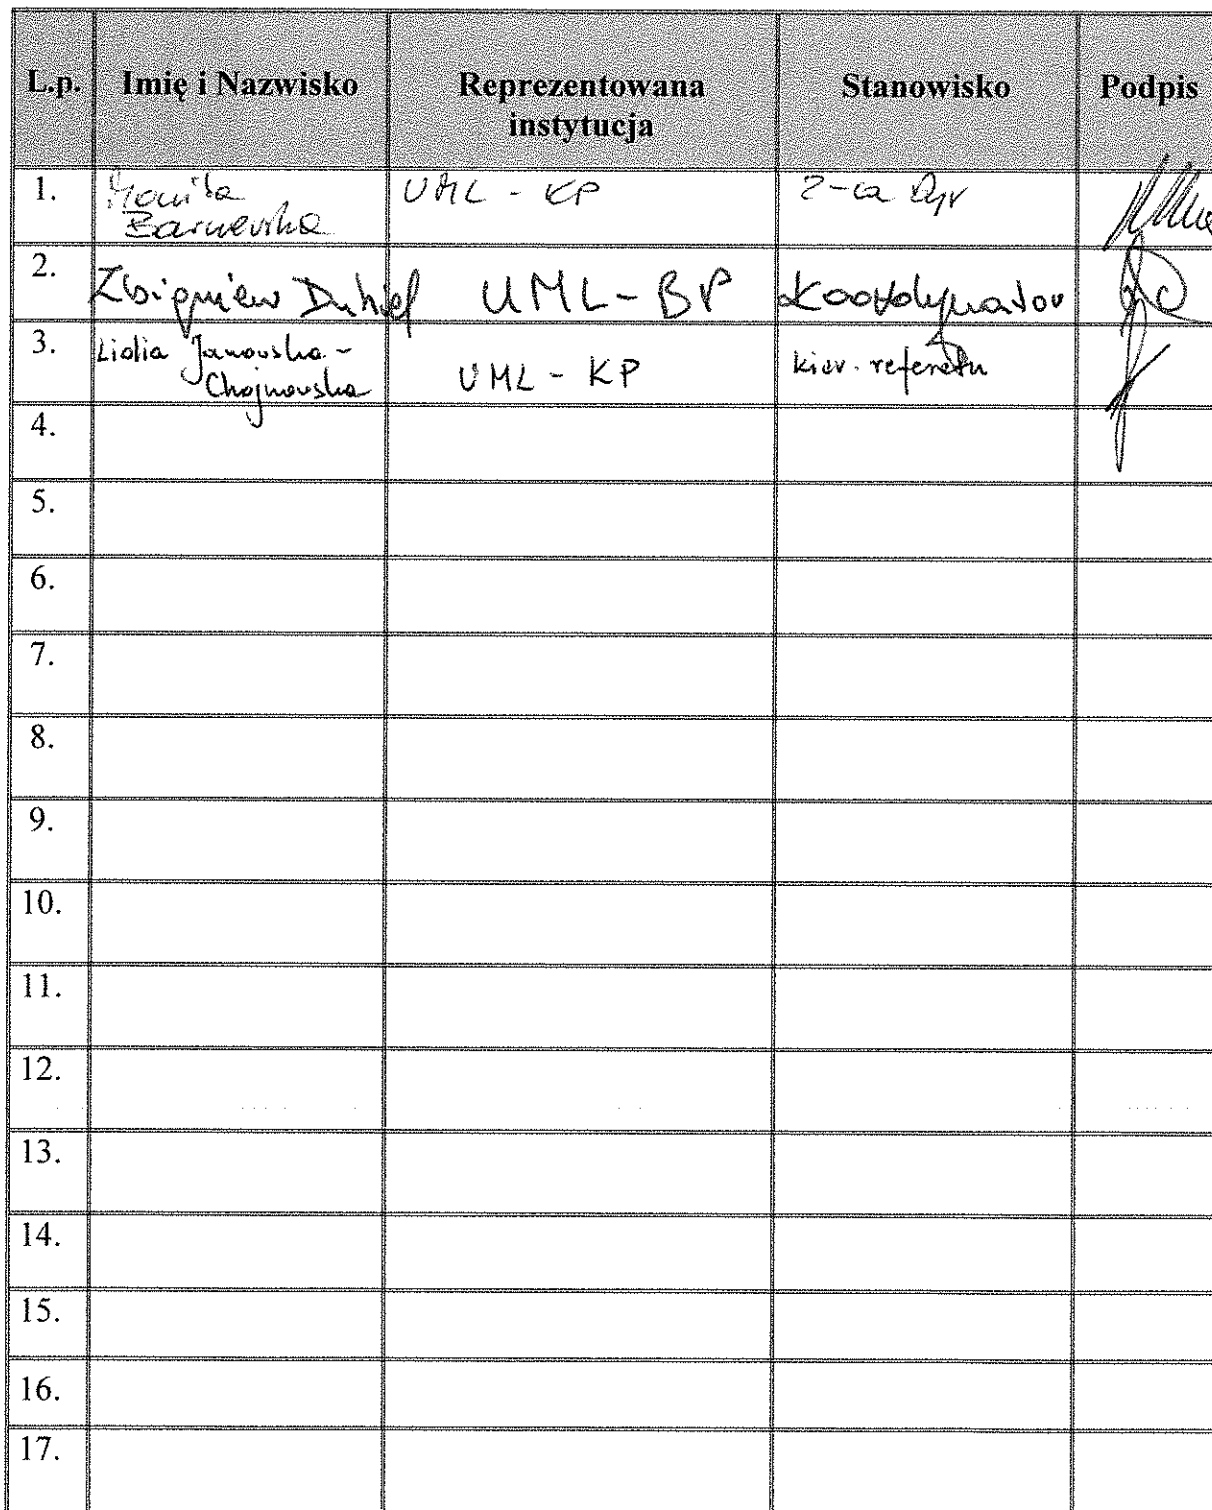 L.p. Imię i Nazwisko Reprezentowana instytucja Stanowisko Podpis
1. Monika UML - KP Z-ca Dyr
2. Zbigniew UML - BP Koordynator
3. Lidia Janowska - Chojnowska UML - KP kier. referatu
4.
5.
6.
7.
8.
9.
10.
11.
12.
13.
14.
15.
16.
17.